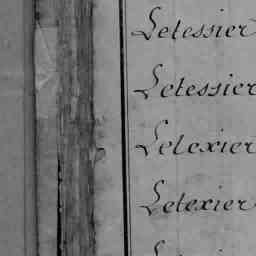 Letessier
Letessier
Letexier
Letexier